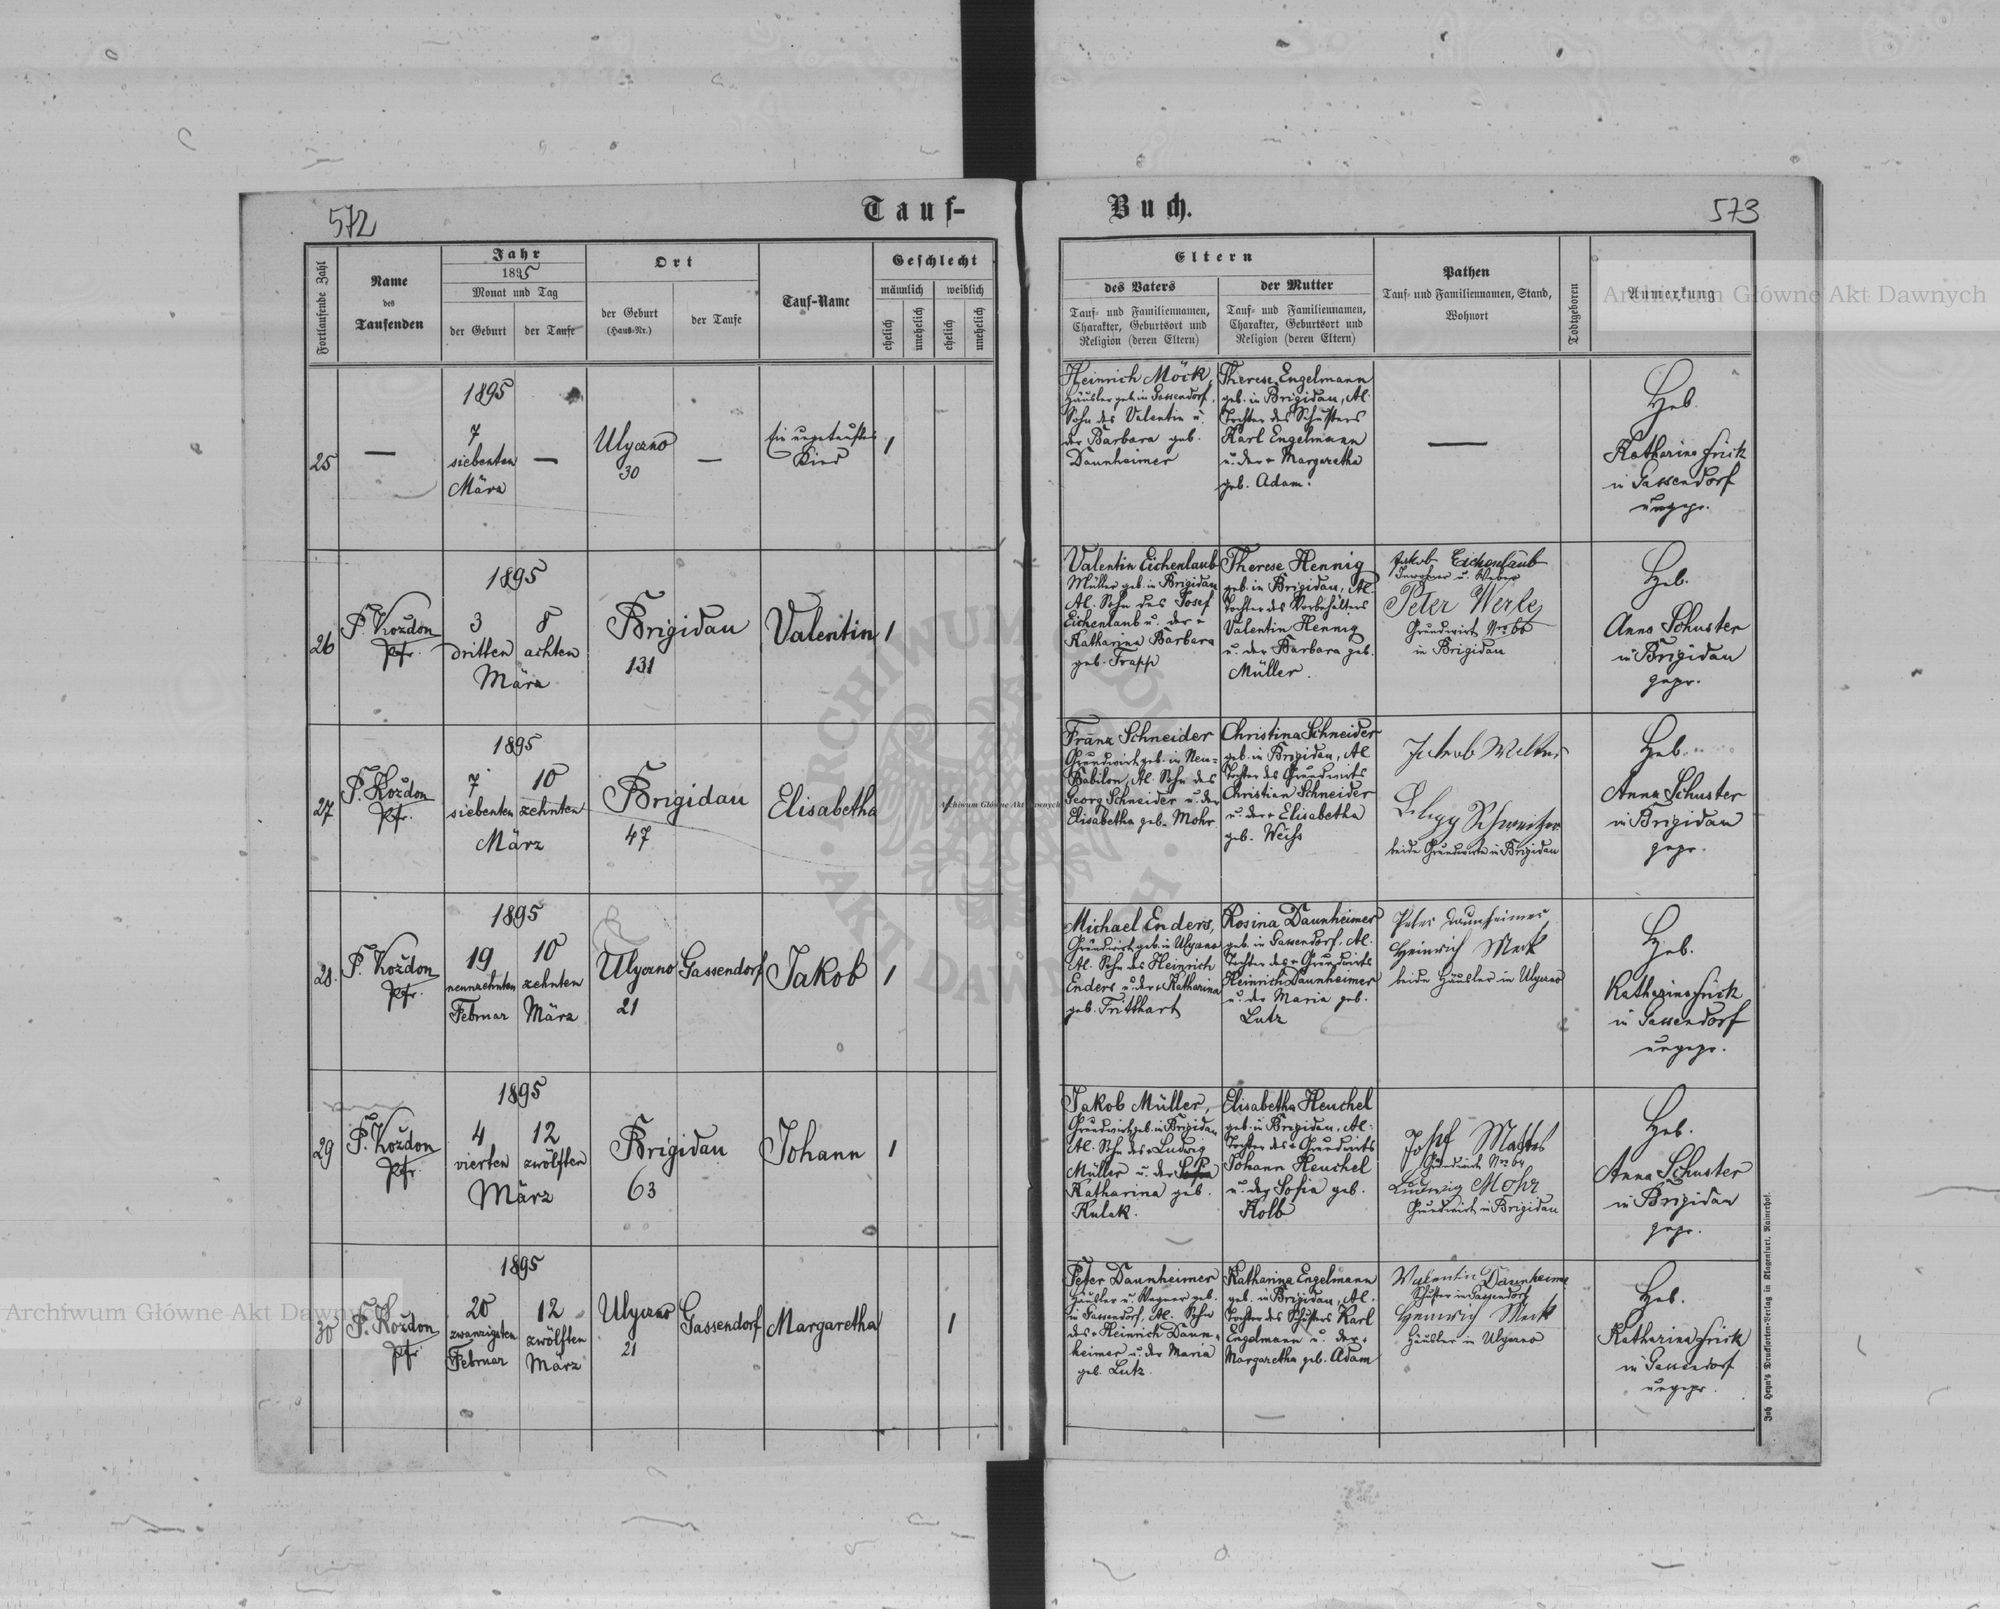 572
Tauf-
Buch.
573
Fortlaufende Zahl
Name
des
Taufenden
Jahr
1895
Monat und Tag
der Geburt
der Taufe
Ort
der Geburt
(Haus-Nr.)
der Taufe
Tauf-Name
Geschlecht
männlich
weiblich
ehelich
unehelich
ehelich
unehelich
Eltern
des Vaters
Tauf- und Familiennamen,
Charakter, Geburtsort und
Religion (deren Eltern)
der Mutter
Tauf- und Familiennamen,
Charakter, Geburtsort und
Religion (deren Eltern)
Pathen
Tauf- und Familiennamen, Stand,
Wohnort
Todtgeboren
Anmerkung
25
—
1895
7
siebenten
März
—
Ulyczno
30
—
Ein ungetauftes
Kind
1
Heinrich Möck,
Häusler geb. in Gassendorf,
Sohn des Valentin u.
der Barbara geb.
Daunheimer
Therese Engelmann
geb. in Brigidau, Al.
Tochter des Schusters
Karl Engelmann
u. der + Margaretha
geb. Adam.
—
Heb.
Katharina Frick
in Gassendorf
ungepr.
26
P. Kozdon
Pfr.
1895
3
dritten
8
achten
März
Brigidau
131
Valentin
1
Valentin Eichenlaub
Müller geb. in Brigidau
Al. Sohn des Josef
Eichenlaub u. der +
Katharina Barbara
geb. Trapp
Therese Hennig
geb. in Brigidau, Al.
Tochter des Vorbehälters
Valentin Hennig
u. der Barbara geb.
Müller.
Jakob Eichenlaub
Inwohner u. Weber
Peter Werle
Grundwirt Nro 66
in Brigidau
Heb.
Anna Schuster
in Brigidau
gepr.
27
P. Kozdon
Pfr.
1895
7
siebenten
10
zehnten
März
Brigidau
47
Elisabetha
1
Franz Schneider
Grundwirt geb. in Neu-
Babilon, Al. Sohn des
Georg Schneider u. der
Elisabetha geb. Mohr.
Christina Schneider
geb. in Brigidau, Al.
Tochter des Grundwirts
Christian Schneider
u. der + Elisabetha
geb. Weiss
Jakob
beide Grundwirte in Brigidau
Heb.
Anna Schuster
in Brigidau
gepr.
28.
P. Kozdon
Pfr.
1895
19
neunzehnten
Februar
10
zehnten
März
Ulyczno
21
Gassendorf
Jakob
1
Michael Enders,
Grundwirt geb. in Ulyczno
Al. Sohn des Heinrich
Enders u. der + Katharina
geb. Fritthart
Rosina Daunheimer
geb. in Gassendorf, Al.
Tochter des + Grundwirts
Heinrich Daunheimer
u. der Maria geb.
Lutz
Peter Daunheimer
Heinrich Meck
beide Häusler in Ulyczno
Heb.
Katharina Frick
in Gassendorf
ungepr.
29
P. Kozdon
Pfr.
1895
4
vierten
12
zwölften
März
Brigidau
63
Johann
1
Jakob Müller,
Grundwirt geb. in Brigidau
Al. Sohn des + Ludwig
Müller u. der
Katharina geb.
Kulak.
Elisabetha Heuchel
geb. in Brigidau, Al.
Tochter des + Grundwirts
Johann Heuchel
u. der Sofia geb.
Kolb
Josef Mattes
Grundwirt Nro 64
Ludwig Mohr
Grundwirt in Brigidau
Heb.
Anna Schuster
in Brigidau
gepr.
30
P. Kozdon
Pfr.
1895
20
zwanzigsten
Februar
12
zwölften
März
Ulyczno
21
Gassendorf
Margaretha
1
Peter Daunheimer
Häusler u. Wagner geb.
in Gassendorf, Al. Sohn
des + Heinrich Daun-
heimer u. der Maria
geb. Lutz.
Katharina Engelmann
geb. in Brigidau, Al.
Tochter des Schusters Karl
Engelmann u. der +
Margaretha geb. Adam
Valentin Daunheimer
Schuster in Gassendorf
Heinrich Meck
Häusler in Ulyczno
Heb.
Katharina Frick
in Gassendorf
ungepr.
Joh. Heyn's Drucksorten-Verlag in Klagenfurt, Rainerhof.
Archiwum Główne Akt Dawnych
Archiwum Główne Akt Dawnych
Archiwum Główne Akt Dawnych
ARCHIWUM GŁÓWNE · AKT DAWNYCH ·